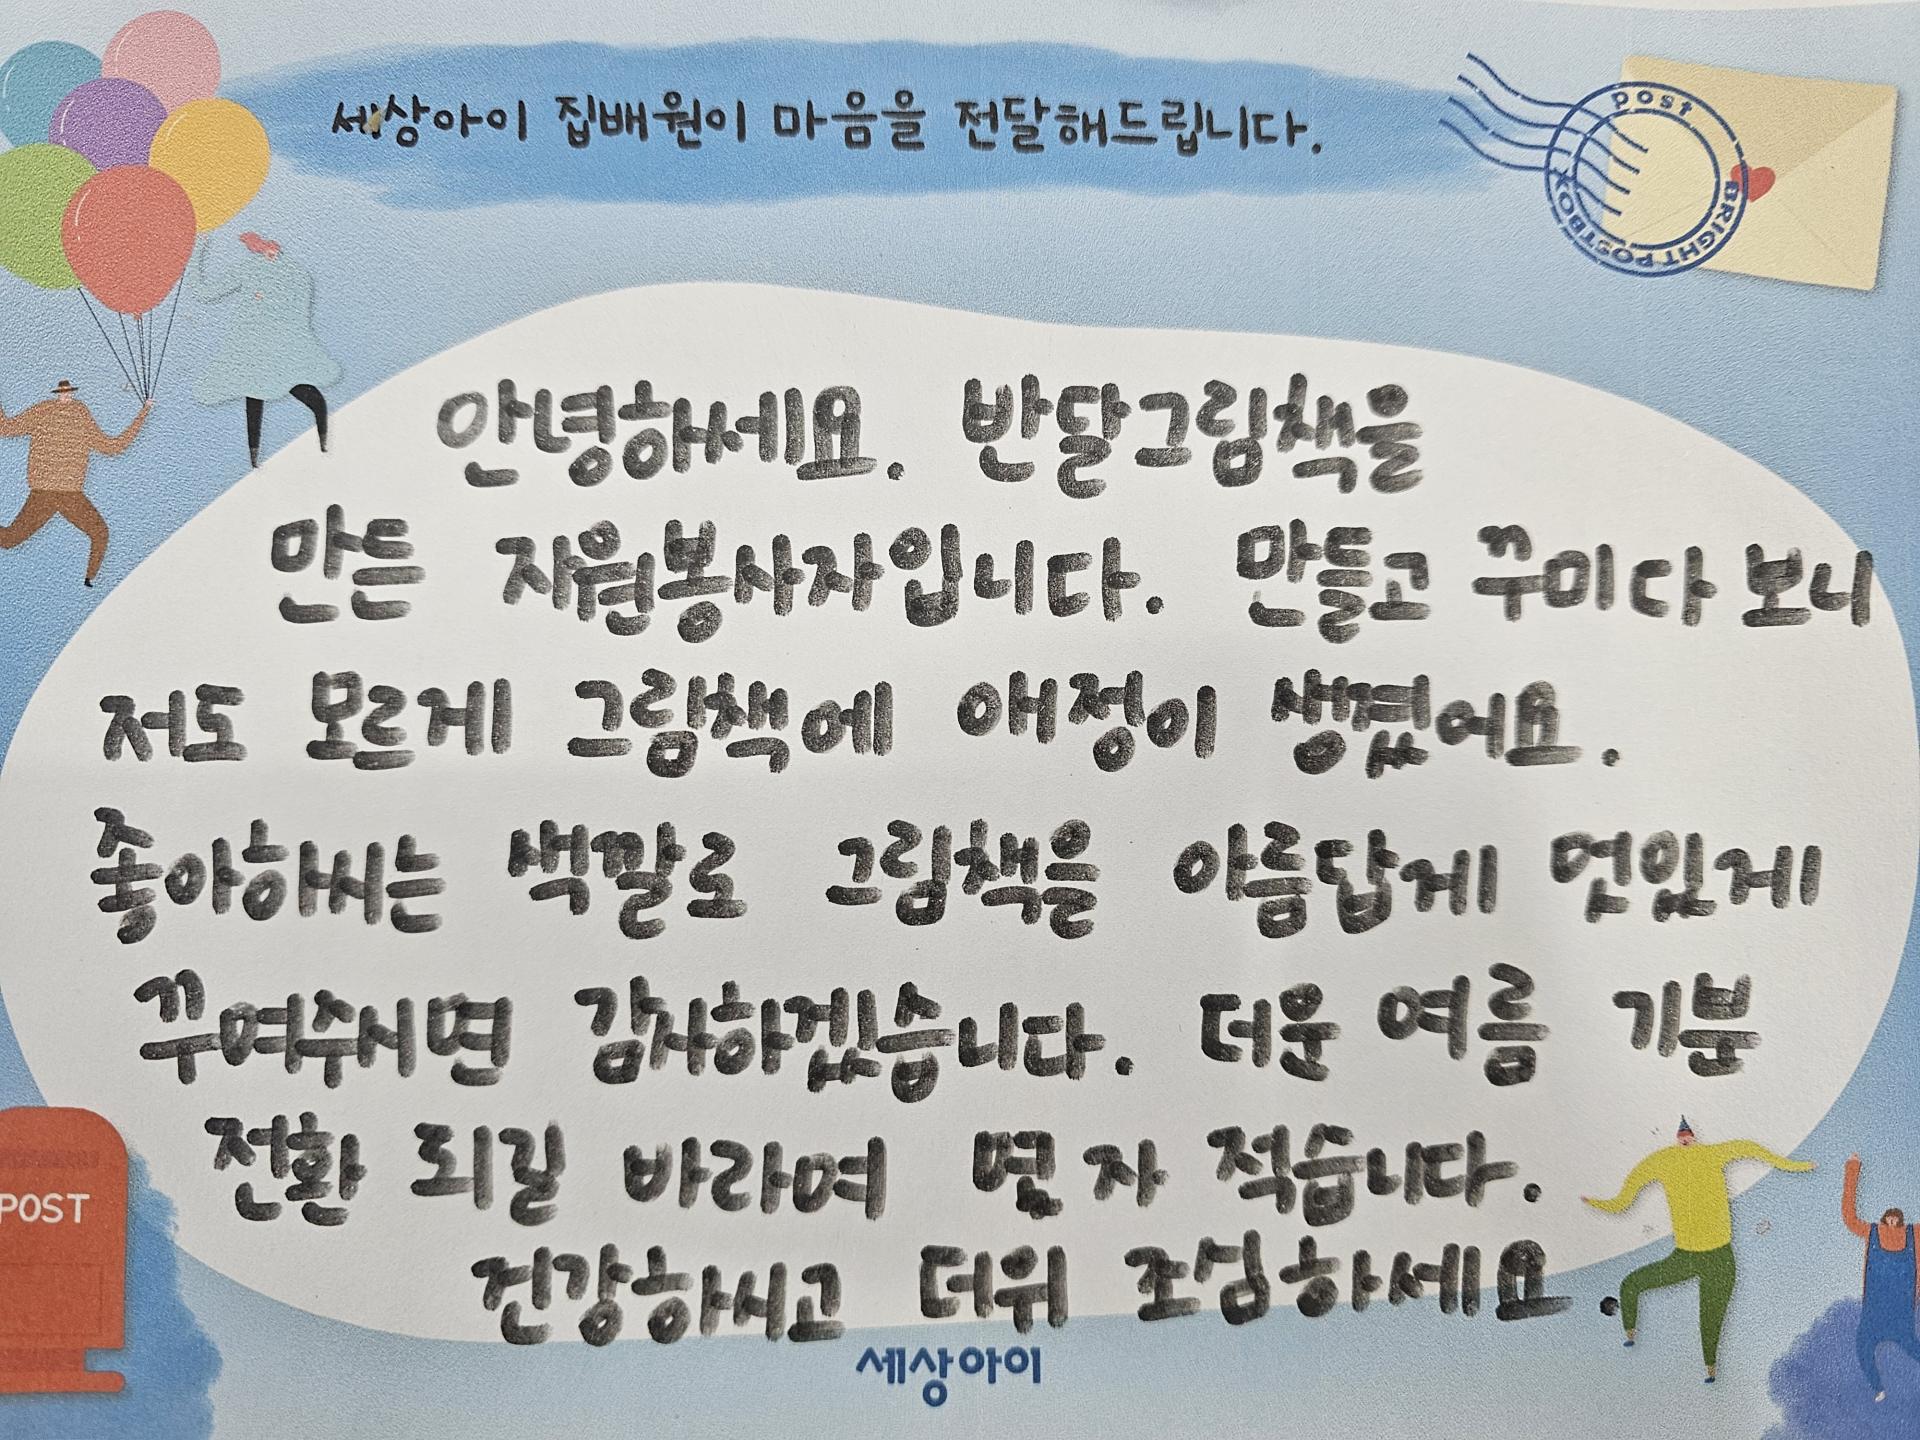 세상아이 집배원이 마음을 전달해드립니다.
post
BRIGHT POSTBOX
안녕하세요. 반달그림책을
만든 자원봉사자입니다. 만들고 꾸미다 보니
저도 모르게 그림책에 애정이 생겼어요.
좋아하시는 색깔로 그림책을 아름답게 멋있게
꾸며주시면 감사하겠습니다. 더운 여름 기분
전환 되길 바라며 몇 자 적습니다.
건강하시고 더위 조심하세요.
POST
세상아이